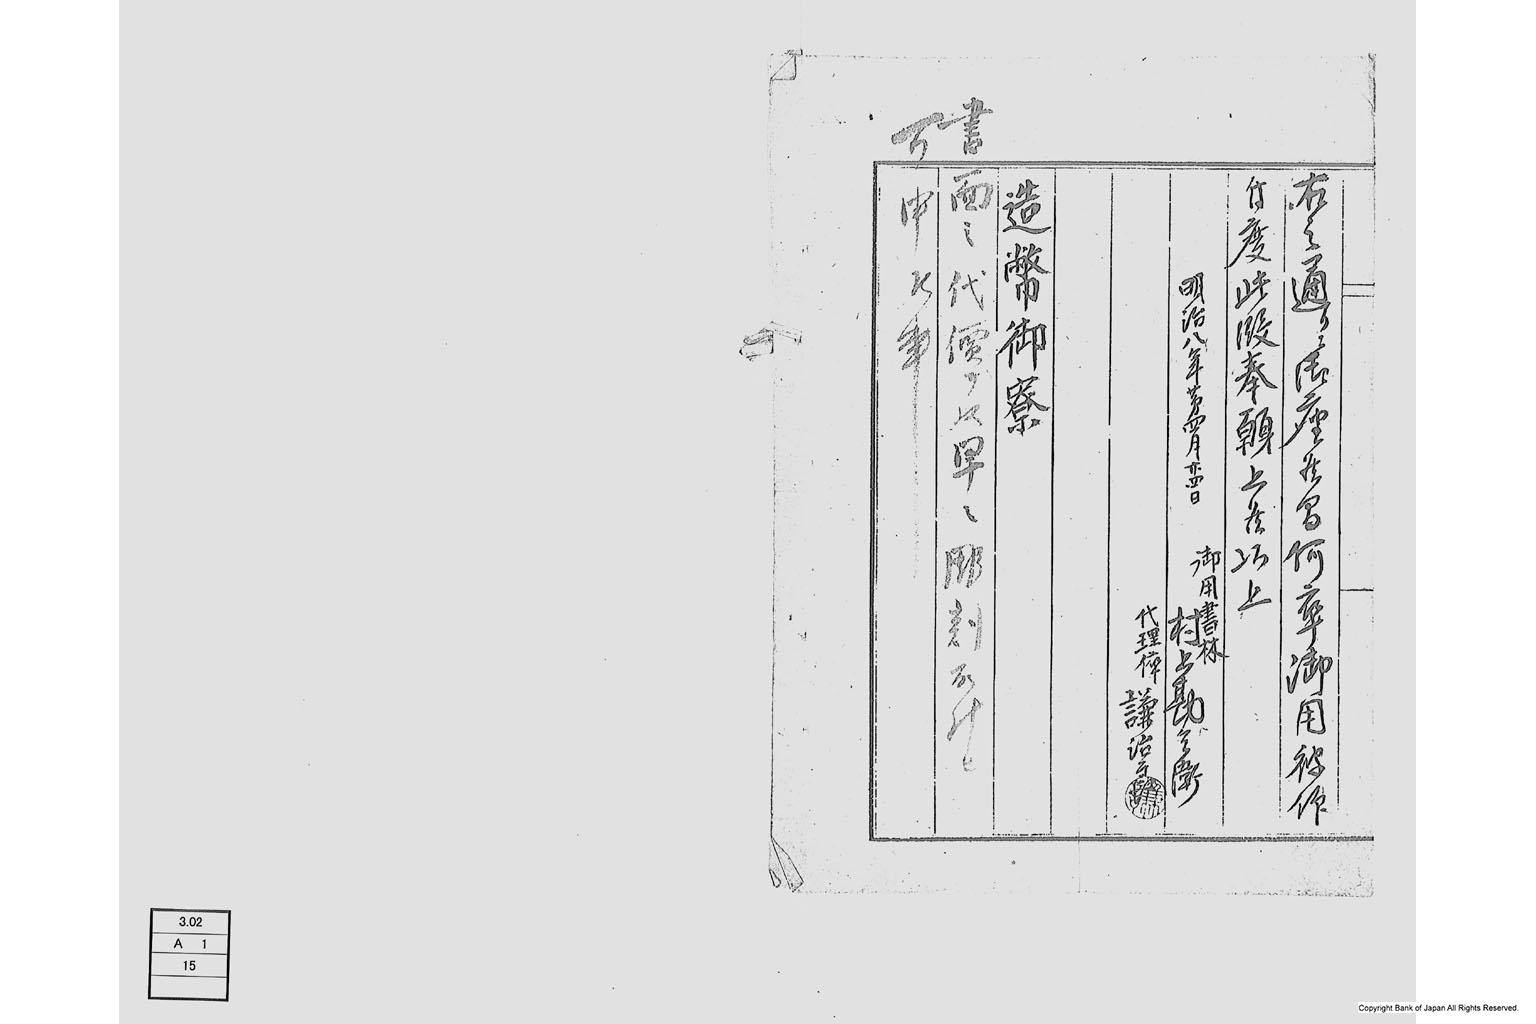 右之通ニ御座候間何卒御用被仰
付度此段奉願上候以上
明治八年第四月廿四日
御用書林
村上勘兵衛
代理倅
謙治
造幣御寮
書面之代價ヲ以早々彫刻
可申候事
3.02
A 1
15
Copyright Bank of Japan All Rights Reserved.